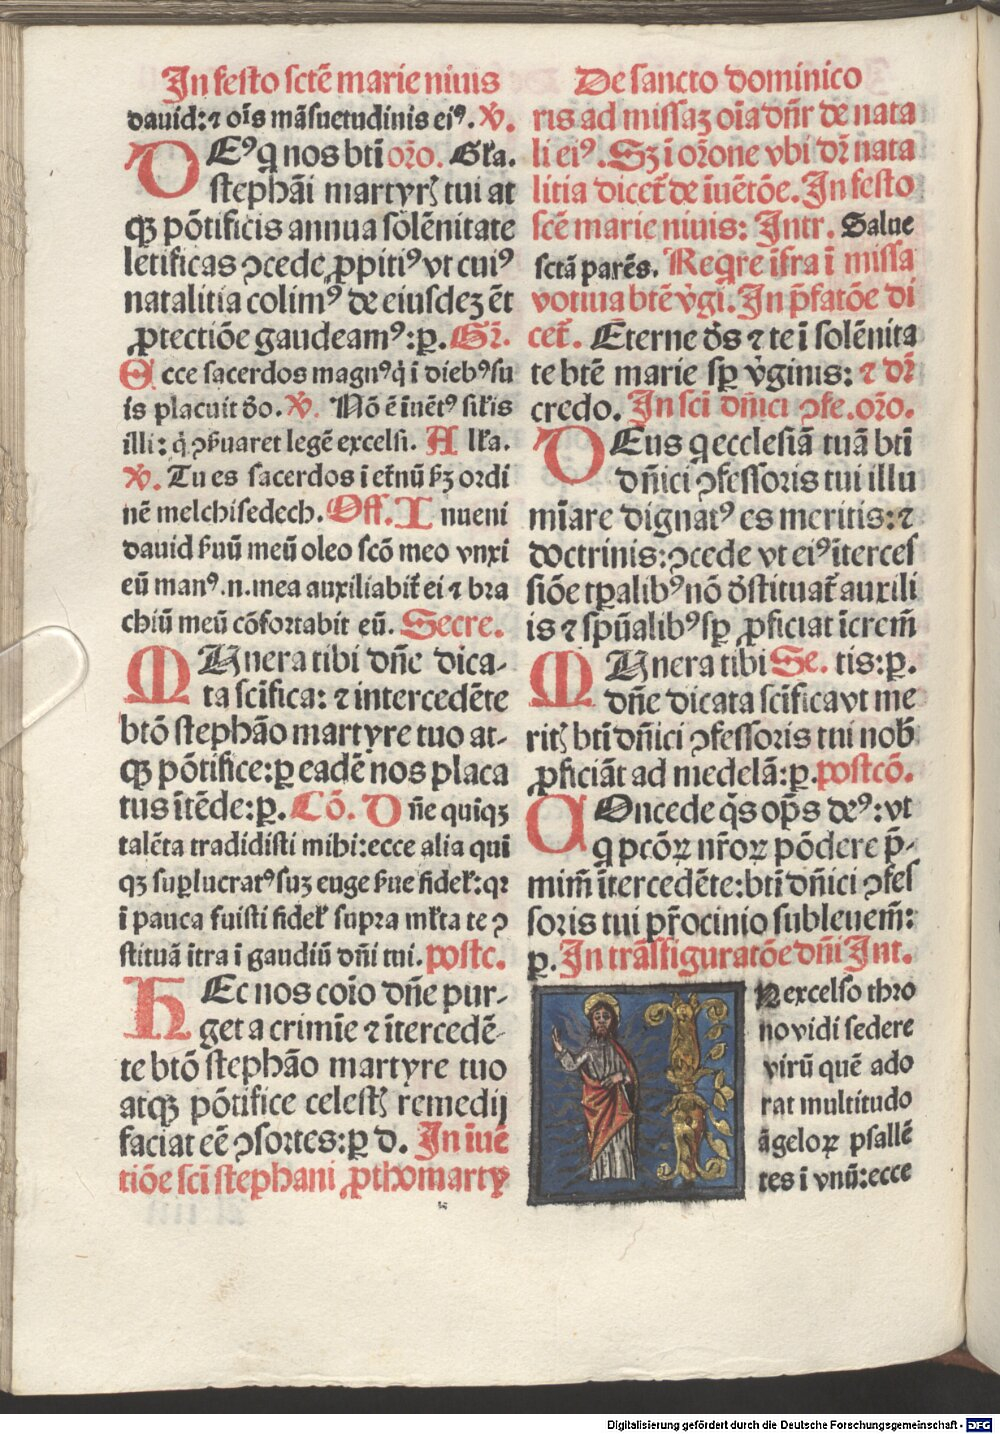 In festo sctē marie niuis
dauid: ⁊ oīs māsuetudinis eiꝰ. ℣.
DEꝰ q̇ nos btī or̃o. Gl̃a.
stephāi martyrꝭ tui at
qꝫ pōtificis annua solēnitate
letificas ↄcede ꝓpitiꝰ vt cuiꝰ
natalitia colimꝰ de eiusdeꝫ ēt
ꝓtectiōe gaudeamꝰ: ꝑ. Gr̃.
Ecce sacerdos magnꝰ q̇ i diebꝰ su
is placuit d̄o. ℣. Nō ē iuētꝰ sil̃is
illi: q̇ ↄẜuaret legē excelsi. Al̃la.
℣. Tu es sacerdos i et̃nū ẜꝫ ordi
nē melchisedech. Off. Inueni
dauid ẜuū meū oleo scō meo vnxi
eū manꝰ .n. mea auxiliabit̃ ei ⁊ bra
chiū meū cōfortabit eū. Secre.
MUnera tibi dn̄e dica-
ta scīfica: ⁊ intercedēte
btō stephāo martyre tuo at-
qꝫ pōtifice: ꝑ eadē nos placa
tus ītēde: ꝑ. Cō. Dn̄e quīqꝫ
talēta tradidisti mihi: ecce alia quī
qꝫ suꝑlucratꝰ suꝫ euge ẜue fidel̃: qꝛ
ī pauca fuisti fidel̃ supra ml̃ta te ↄ
stituā ītra ī gaudiū dn̄i tui. postc.
HEc nos coīo dn̄e pur-
get a crimīe ⁊ ītercedē-
te btō stephāo martyre tuo
atqꝫ pōtifice celestꝭ remedij
faciat eē ↄsortes: ꝑ d. In iuē
tiōe scī stephani ꝓthomarty
De sancto dominico
ris ad missaꝫ oīa dn̄r de nata
li eiꝰ. Sꝫ ī or̃one vbi dr̃ nata
litia dicet̃ de īuētōe. In festo
scē marie niuis: Intr. Salue
sctā parēs. Reqr̃e īfra ī missa
votiua btē v̇gī. In p̄fatōe di
cet̃. Eterne d̄s ⁊ te ī solēnita
te btē marie sꝑ v̇ginis: ⁊ dr̃
credo. In scī dn̄ici ↄfe. or̃o.
DEus q̇ ecclesiā tuā btī
dn̄ici ↄfessoris tui illu
mīare dignatꝰ es meritis: ⁊
doctrinis: ↄcede vt eiꝰ īterces
siōe tꝑalibꝰ nō d̄stituat̃ auxili
is ⁊ spūalibꝰ sꝑ ꝓficiat īcrem̄
MUnera tibi Se. tis: ꝑ.
dn̄e dicata scīfica vt me
ritꝭ btī dn̄ici ↄfessoris tui nob̄
ꝓficiāt ad medelā: ꝑ. postcō.
COncede q̄s op̄s deꝰ: vt
q̇ pcōꝝ nr̄oꝝ pōdere p̄-
mim̄ ītercedēte: btī dn̄ici ↄfes
soris tui pr̄ocinio subleuem̄:
ꝑ. In trāsfiguratōe dn̄i Int.
IN excelso thro
no vidi sedere
virū quē ado
rat multitudo
āgeloꝝ psallē
tes ī vnū: ecce
Digitalisierung gefördert durch die Deutsche Forschungsgemeinschaft - DFG